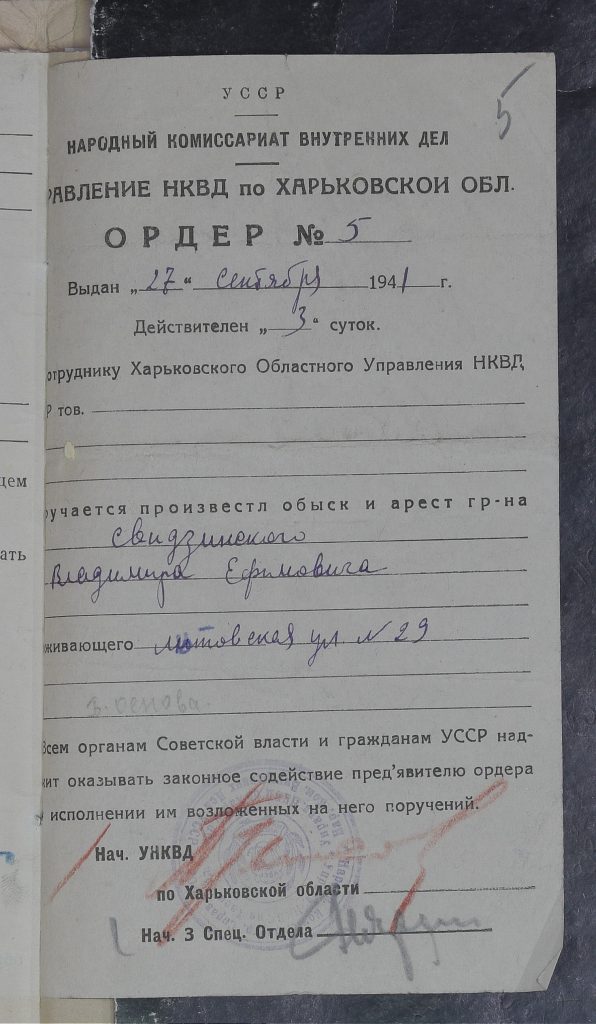 5
УССР
НАРОДНЫЙ КОМИССАРИАТ ВНУТРЕННИХ ДЕЛ
РАВЛЕНИЕ НКВД по ХАРЬКОВСКОИ ОБЛ.
ОРДЕР № 5
Выдан „27“ Сентября 1941 г.
Действителен „3“ суток.
отруднику Харьковского Областного Управления НКВД,
Р тов.
цем
учается произвестл обыск и арест гр-на
ать
Свидзинского
Владимира Ефимовича
живающего Лютовская ул. N 29
Основа.
Всем органам Советской власти и гражданам УССР над-
ит оказывать законное содействие пред'явителю ордера
исполнении им возложенных на него поручений.
Нач. УНКВД
по Харьковской области
Нач. 3 Спец. Отдела